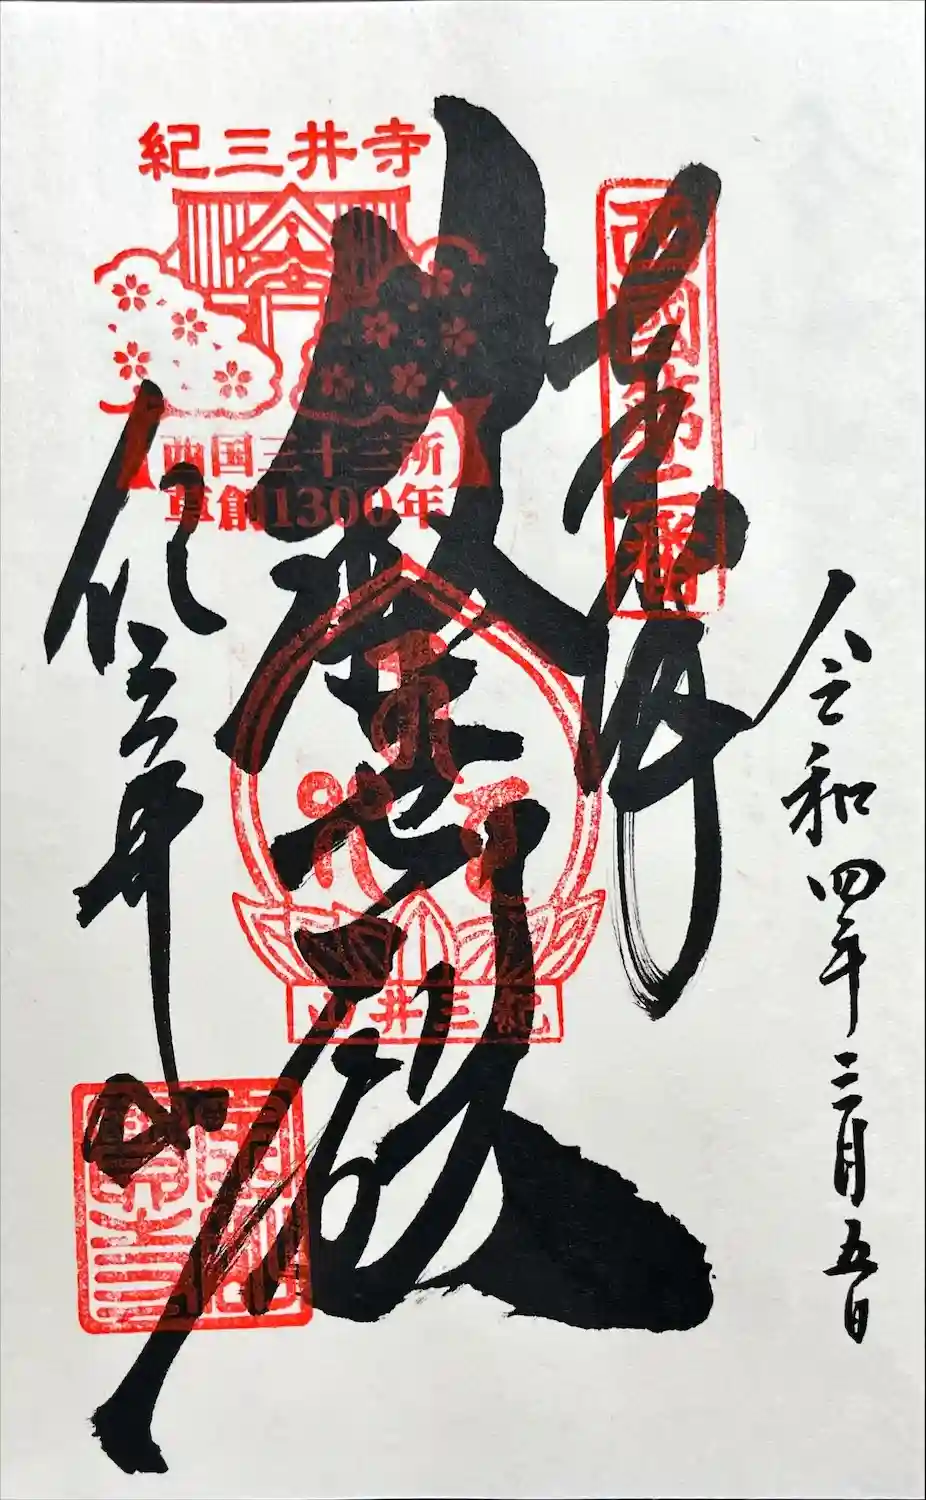 令和四年三月五日
奉拝
西國第二番
救世殿
紀三井寺
西国三十三所
草創1300年
紀三井山
紀三井山